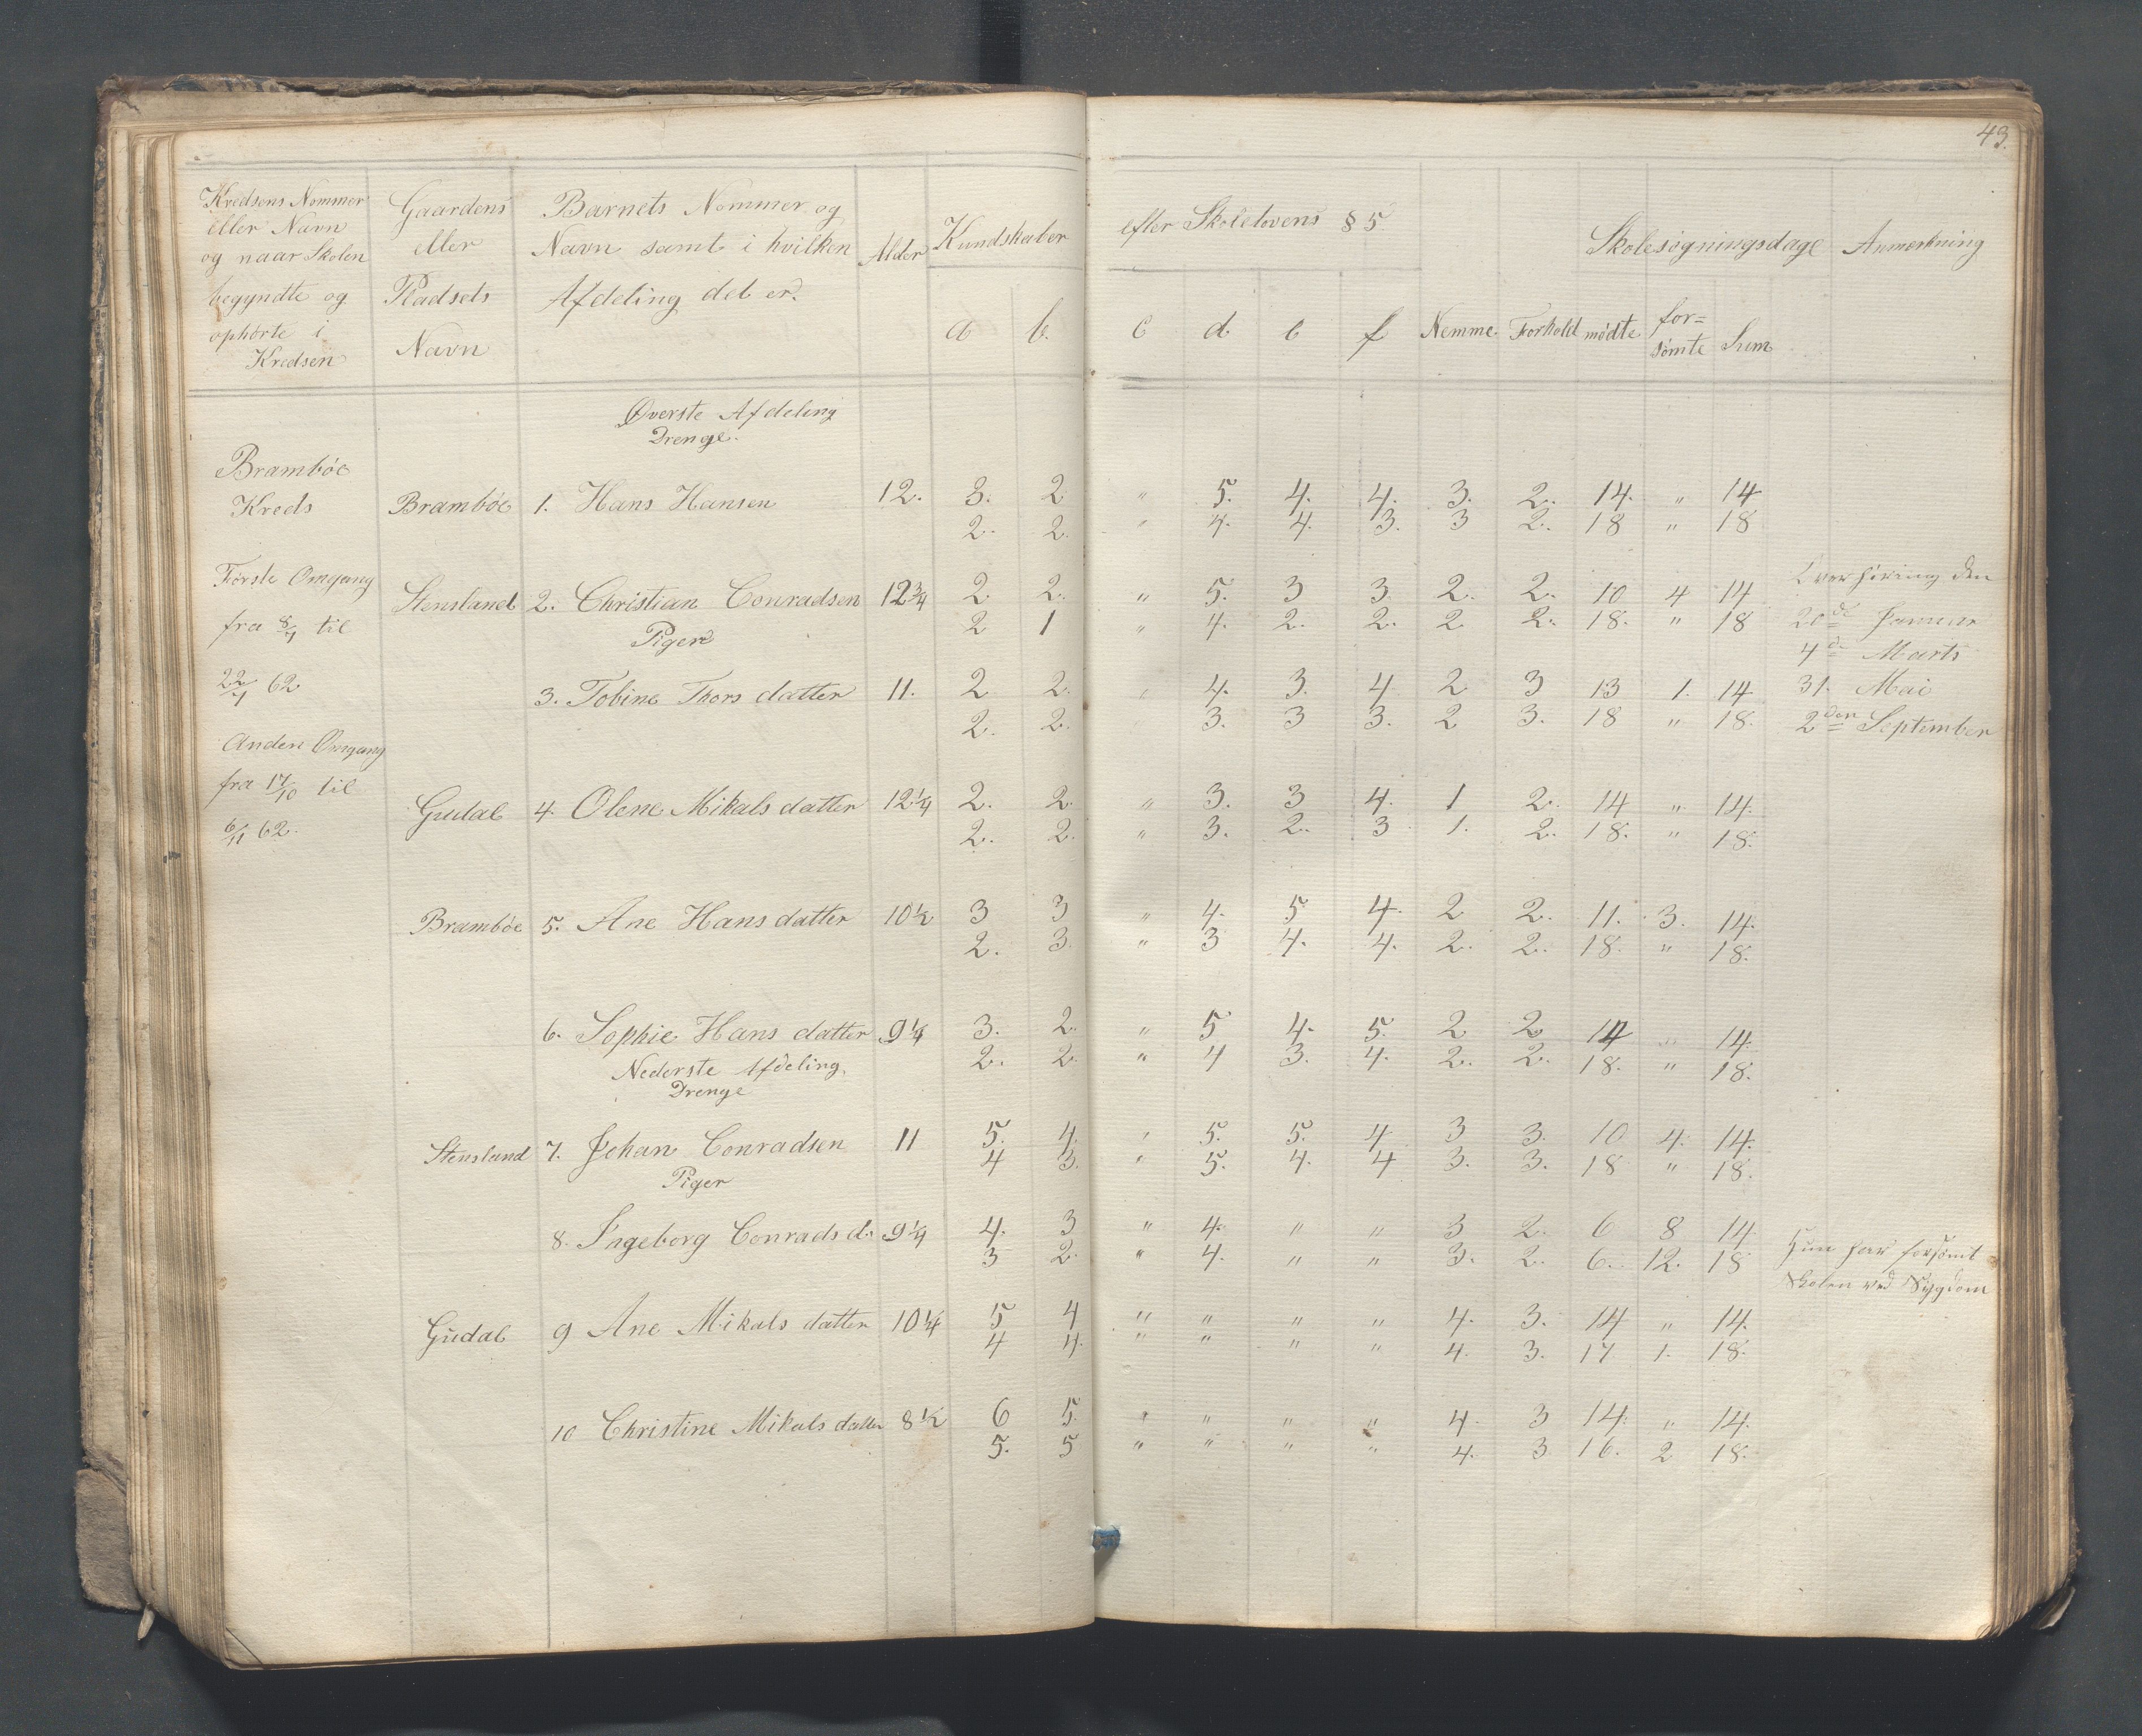 43.
Kredsens Nommer eller Navn og naar Skolen begyndte og ophørte i Kredsen
Gaardens eller Pladsets Navn
Barnets Nommer og Navn samt i hvilken Afdeling det er.
Alder
Kundskaber efter Skolelovens § 5
a b. c d e f Nemme Forhold
Skolesøgningsdage
mødte for= sømte Sum
Anmerkning
Øverste Afdeling
Drenge.
Bramböe
Kreds Bramböe 1. Hans Hansen 12. 3. 2 " 5. 4. 4. 3. 2. 14. " 14
2. 2. " 4. 4. 3. 3 2. 18 " 18
Første Omgang Stensland 2. Christian Conradsen 12¾ 2. 2. " 5. 3 3. 2. 2. 10 4 14 Overhöring den
fra 8/4 til 2 1 " 4. 2. 2. 2 2. 18. " 18 20de Januar
Piger
4de Marts
22/4 62 3. Tobine Thors datter 11. 2 2. " 4. 3. 4 2 3 13 1. 14 31. Mai
2. 2. 3. 3 3. 2 3. 18 " 18. 2den September
Anden Omgang
fra 17/10 til Gudal 4. Olene Mikals datter 12¼ 2. 2. " 3. 3 4. 1 2. 14 " 14.
6/11 62. 2. 2. " 3. 2. 3 1. 2. 18. " 18.
Bramböe 5. Ane Hans datter 10½ 3 3 " 4. 5 4. 2 2. 11. 3. 14.
2. 3. " 3 4. 4. 2. 2. 18. " 18.
6. Sophie Hans datter 9¼ 3. 2. " 5 4. 5. 2 2 14 " 14.
2. 2. " 4 3. 4. 2. 2. 18. " 18.
Nederste Afdeling.
Drenge
Stensland 7. Johan Conradsen 11 5. 4. " 5. 5. 4 3 3. 10 4. 14.
4 3. " 5. 4. 4 3. 3. 18 " 18.
Piger
8. Ingeborg Conrads d. 9¼ 4. 3 " 4. " " 3 2. 6 8 14. Hun har forsömt
3 2. " 4. " " 3. 2. 6. 12. 18 Skolen ved Sygdom
Gudal 9 Ane Mikals datter 10¼ 5 4 " " " " 4. 3. 14 " 14.
4 4. " " " " 4. 3. 17 1. 18.
10 Christine Mikals datter 8½ 6 5. " " " " 4. 3 14. " 14.
5. 5 " " " " 4. 3 16. 2 18.